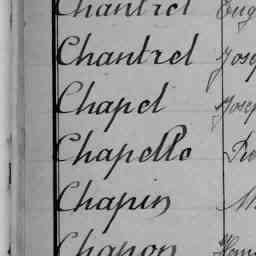 Chantrel Eug
Chantrel Jose
Chapel Josep
Chapelle
Chapin M
Chapon Hen